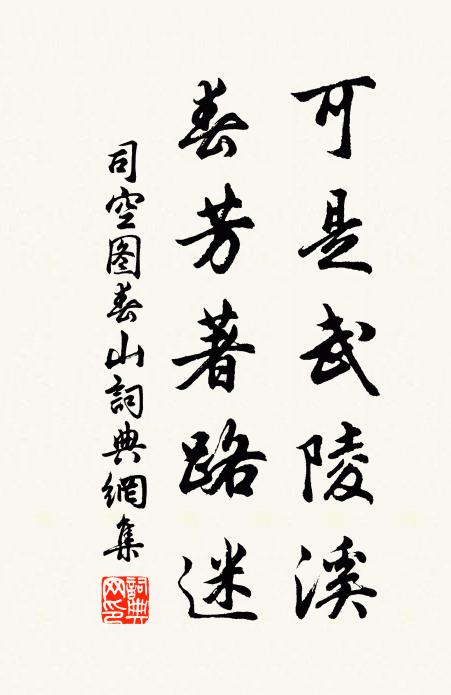 可是武陵溪
春芳著路迷
司空图春山詞典網集
詞典网印